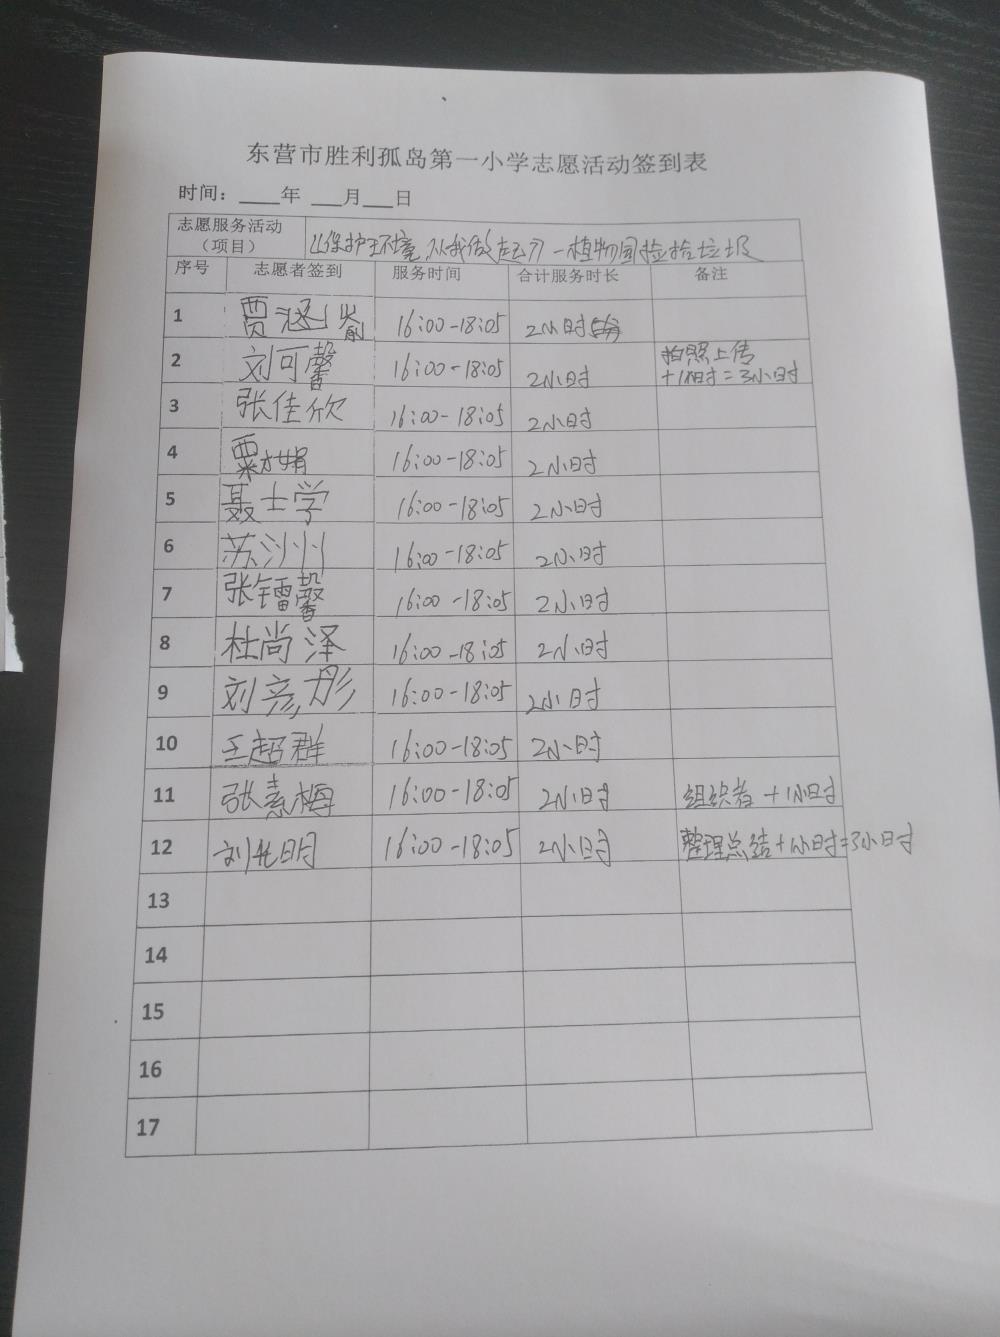 东营市胜利孤岛第一小学志愿活动签到表
时间：____年 ___月___日
志愿服务活动（项目） 保护环境，从我做起 — 植物园捡拾垃圾
序号 志愿者签到 服务时间 合计服务时长 备注
1 贾涵 16:00-18:05 2小时
2 刘可馨 16:00-18:05 2小时 拍照上传+1小时=3小时
3 张佳欣 16:00-18:05 2小时
4 16:00-18:05 2小时
5 聂士学 16:00-18:05 2小时
6 苏沙州 16:00-18:05 2小时
7 张镭馨 16:00-18:05 2小时
8 杜尚泽 16:00-18:05 2小时
9 刘彦彤 16:00-18:05 2小时
10 王超群 16:00-18:05 2小时
11 张素梅 16:00-18:05 2小时 组织者 +1小时
12 刘 明 16:00-18:05 2小时 整理总结+1小时=3小时
13
14
15
16
17